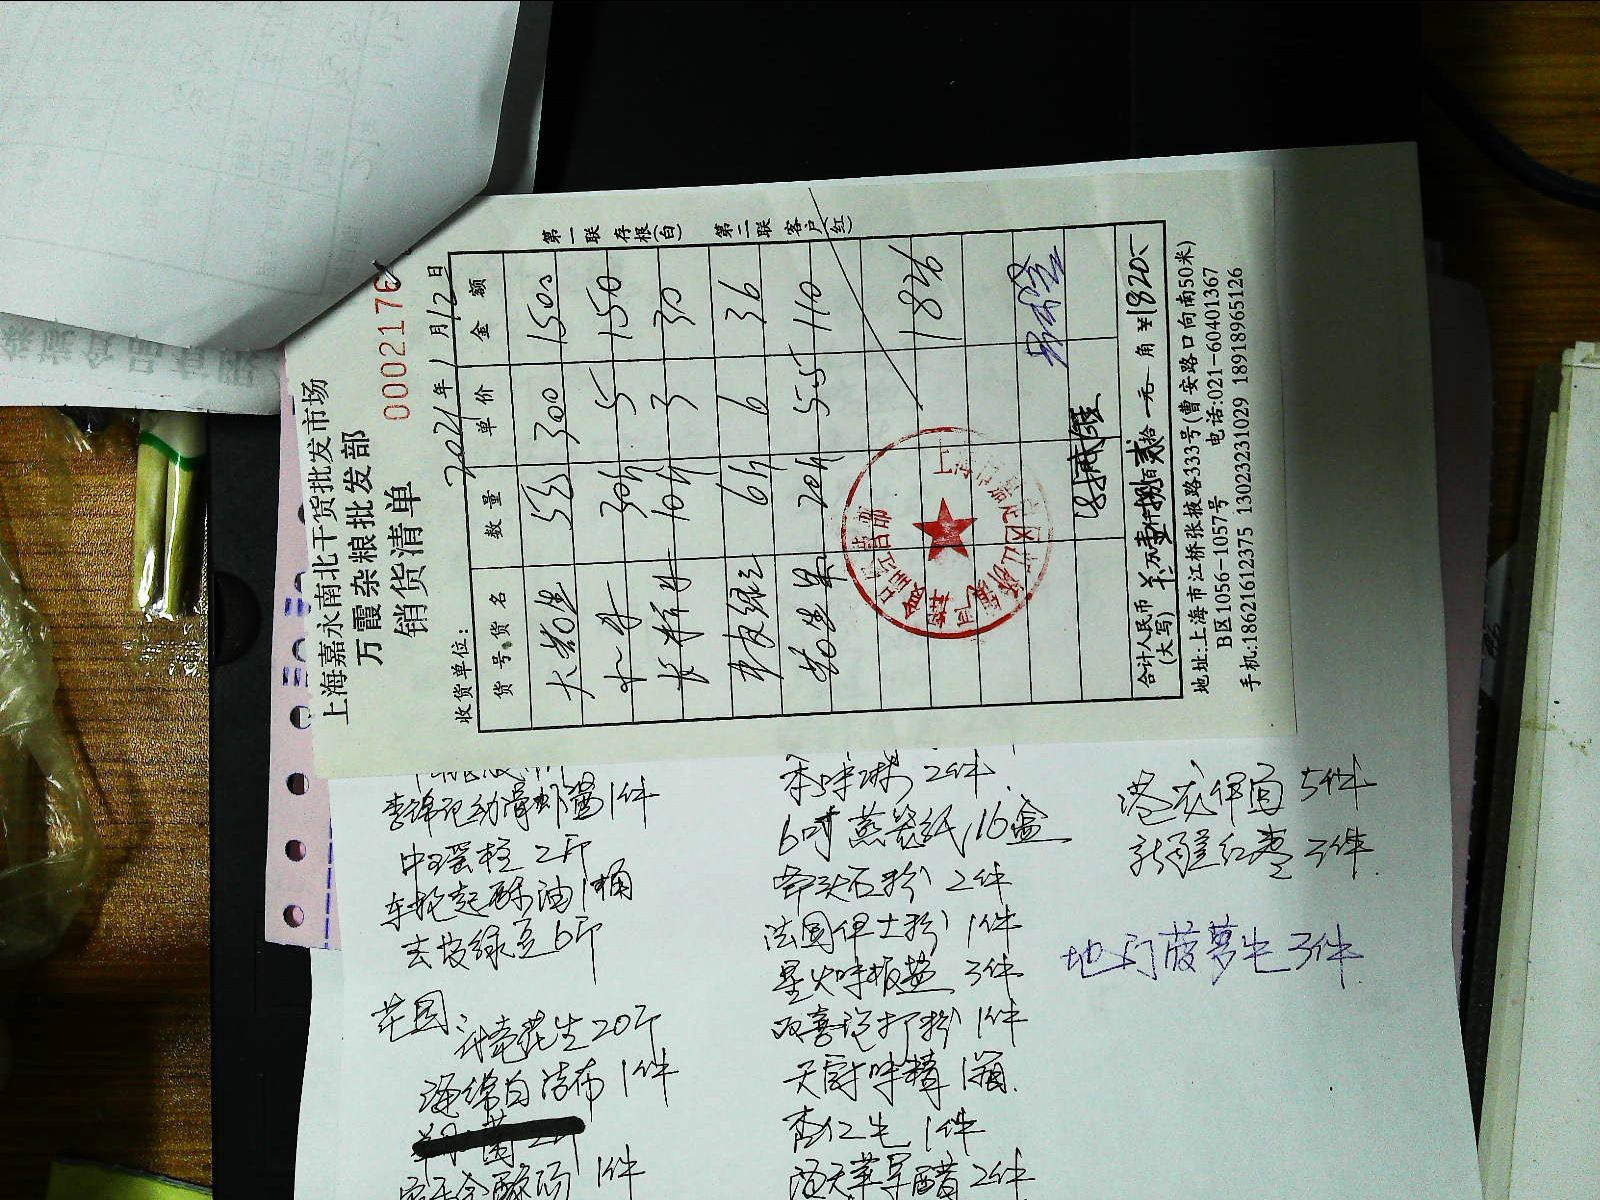 上海嘉永南北干货批发市场
万霞杂粮批发部
销货清单
0002176
收货单位:
2021年1月12日
货号.货名 数量 单价 金额
大花生 5包 300 1500
小米 30斤 5 150
长糯米 10斤 3 30
去皮绿豆 6斤 6 36
花生果 20斤 5.5 110
1826
合计人民币
(大写)
拾 元 角 ¥1820-
地址:上海市江桥张掖路333号(曹安路口向南50米)
B区1056-1057号 电话:021-60401367
手机:18621612375 13023231029 18918965126
第一联 存根(白) 第二联 客户(红)
李锦记幼滑虾酱1件
中瑶柱 2斤
车轮起酥油1桶
去皮绿豆6斤
花园:
带壳花生20斤
海绵百洁布1件
1件
吉味琳 2件
6吋蒸笼纸16盒
石粉 2件
法国伊士粉 1件
星火味椒盐 3件
双喜泡打粉 1件
天厨味精 1箱.
杏仁尖 1件
海天苹果醋2件
港龙伊面 5件
新疆红枣 3件
地扪菠萝尖3件